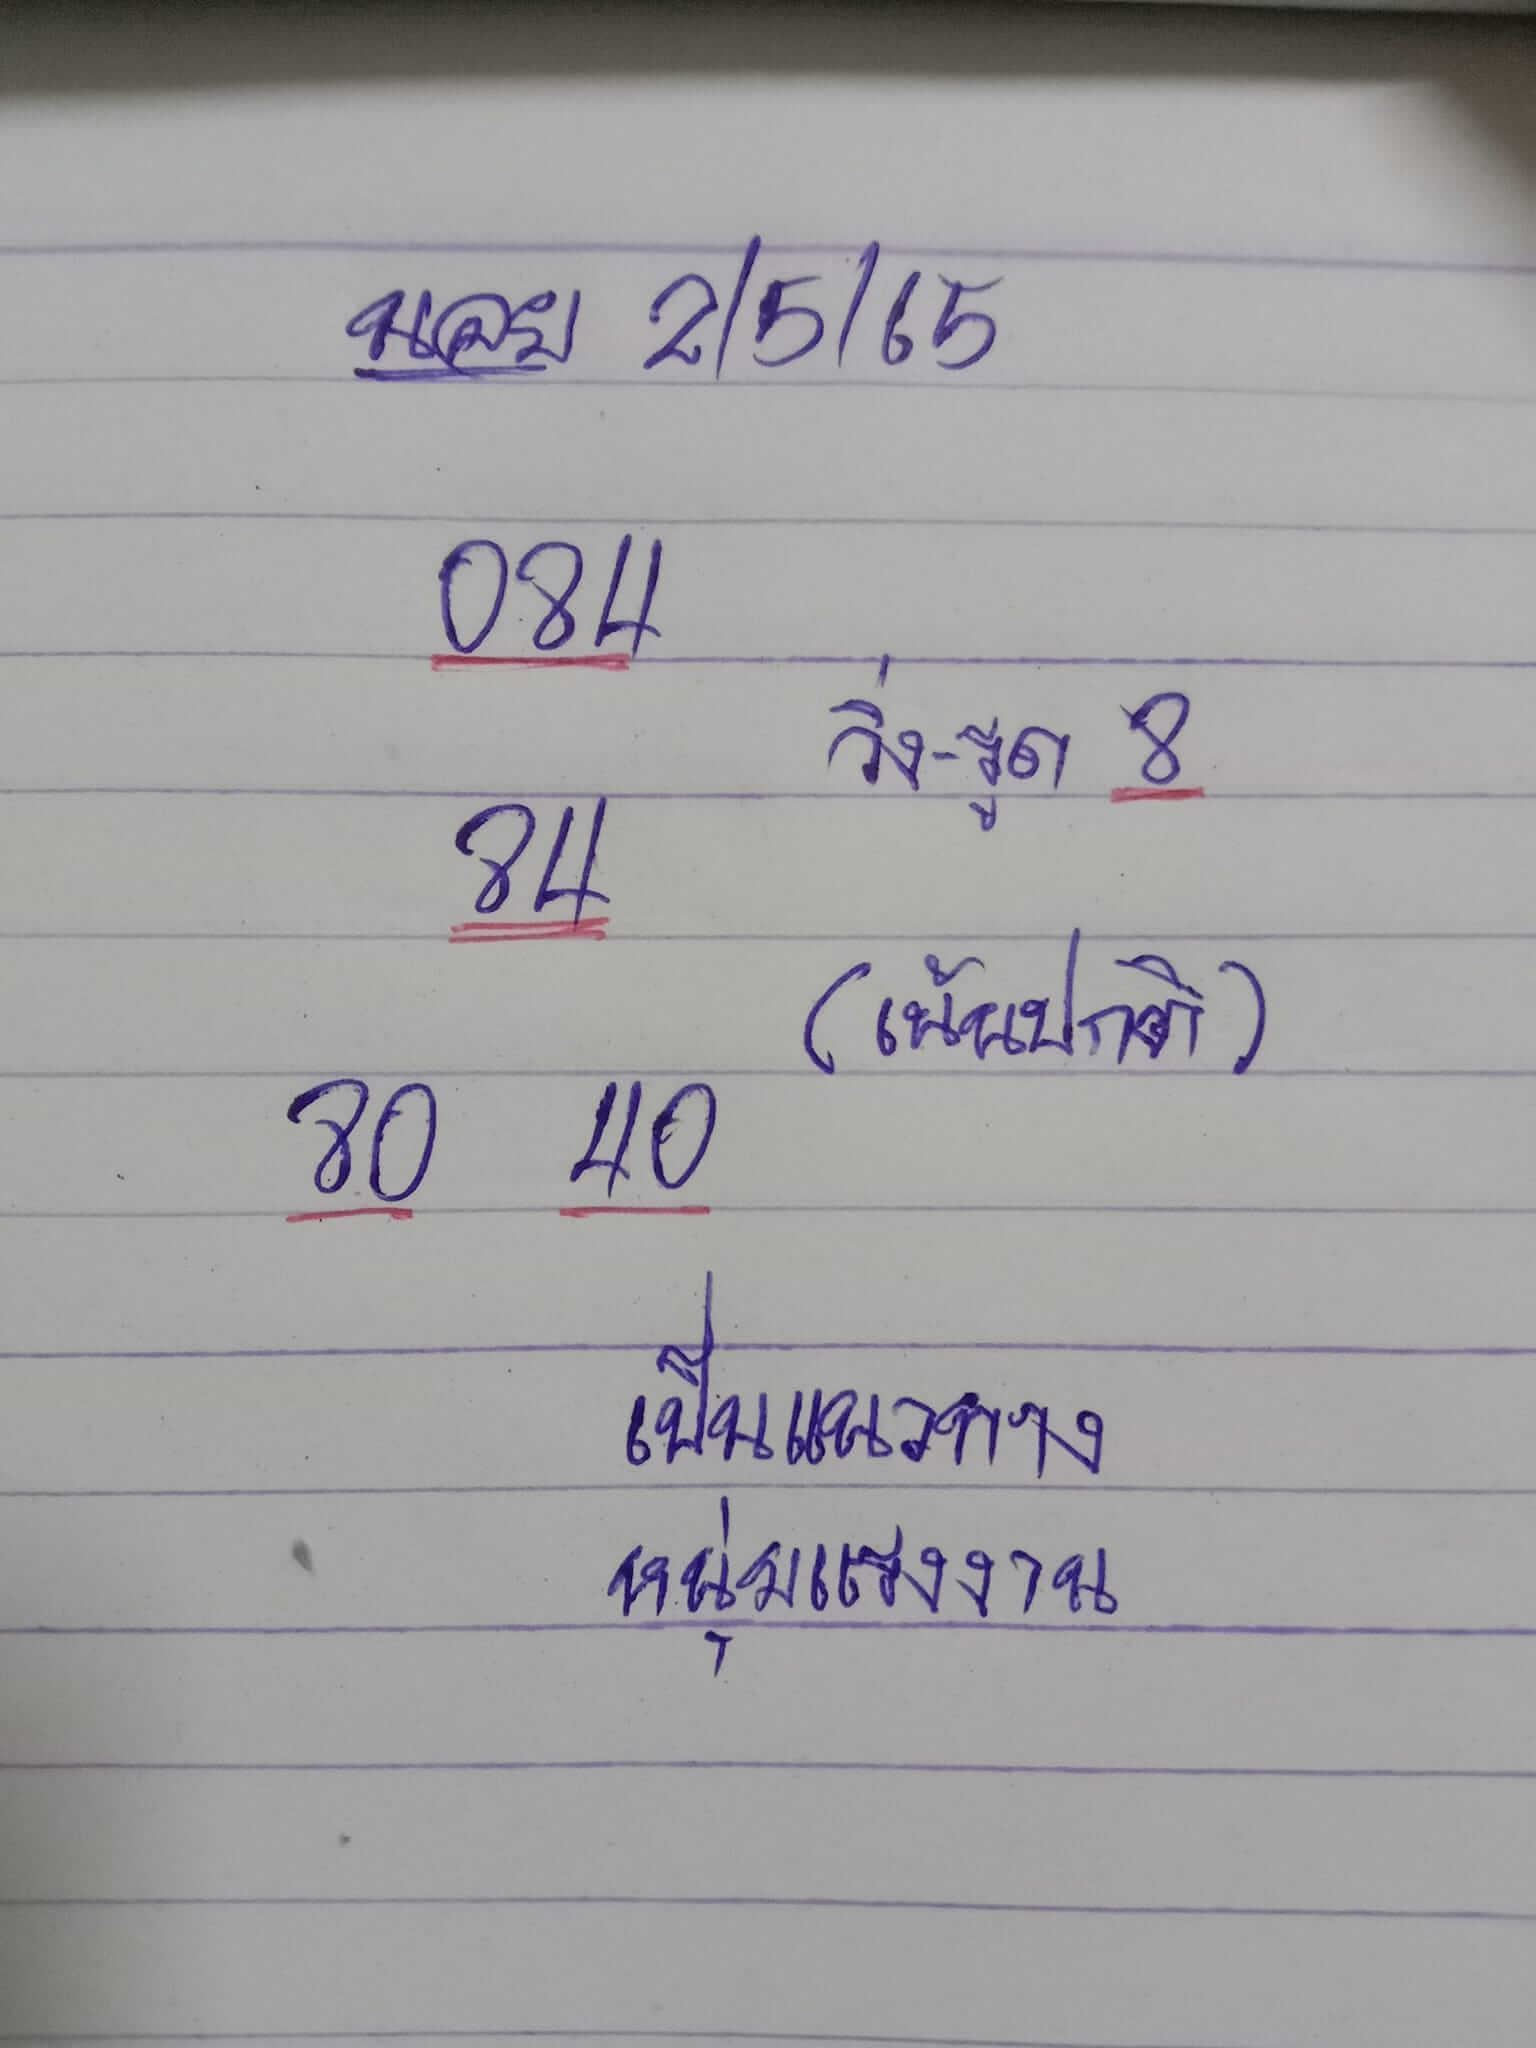 นอย 2/5/65
084
วิ่ง-รูด 8
84
(เน้นปกติ)
80 40
เป็นแนวทาง
หนุ่มแรงงาน